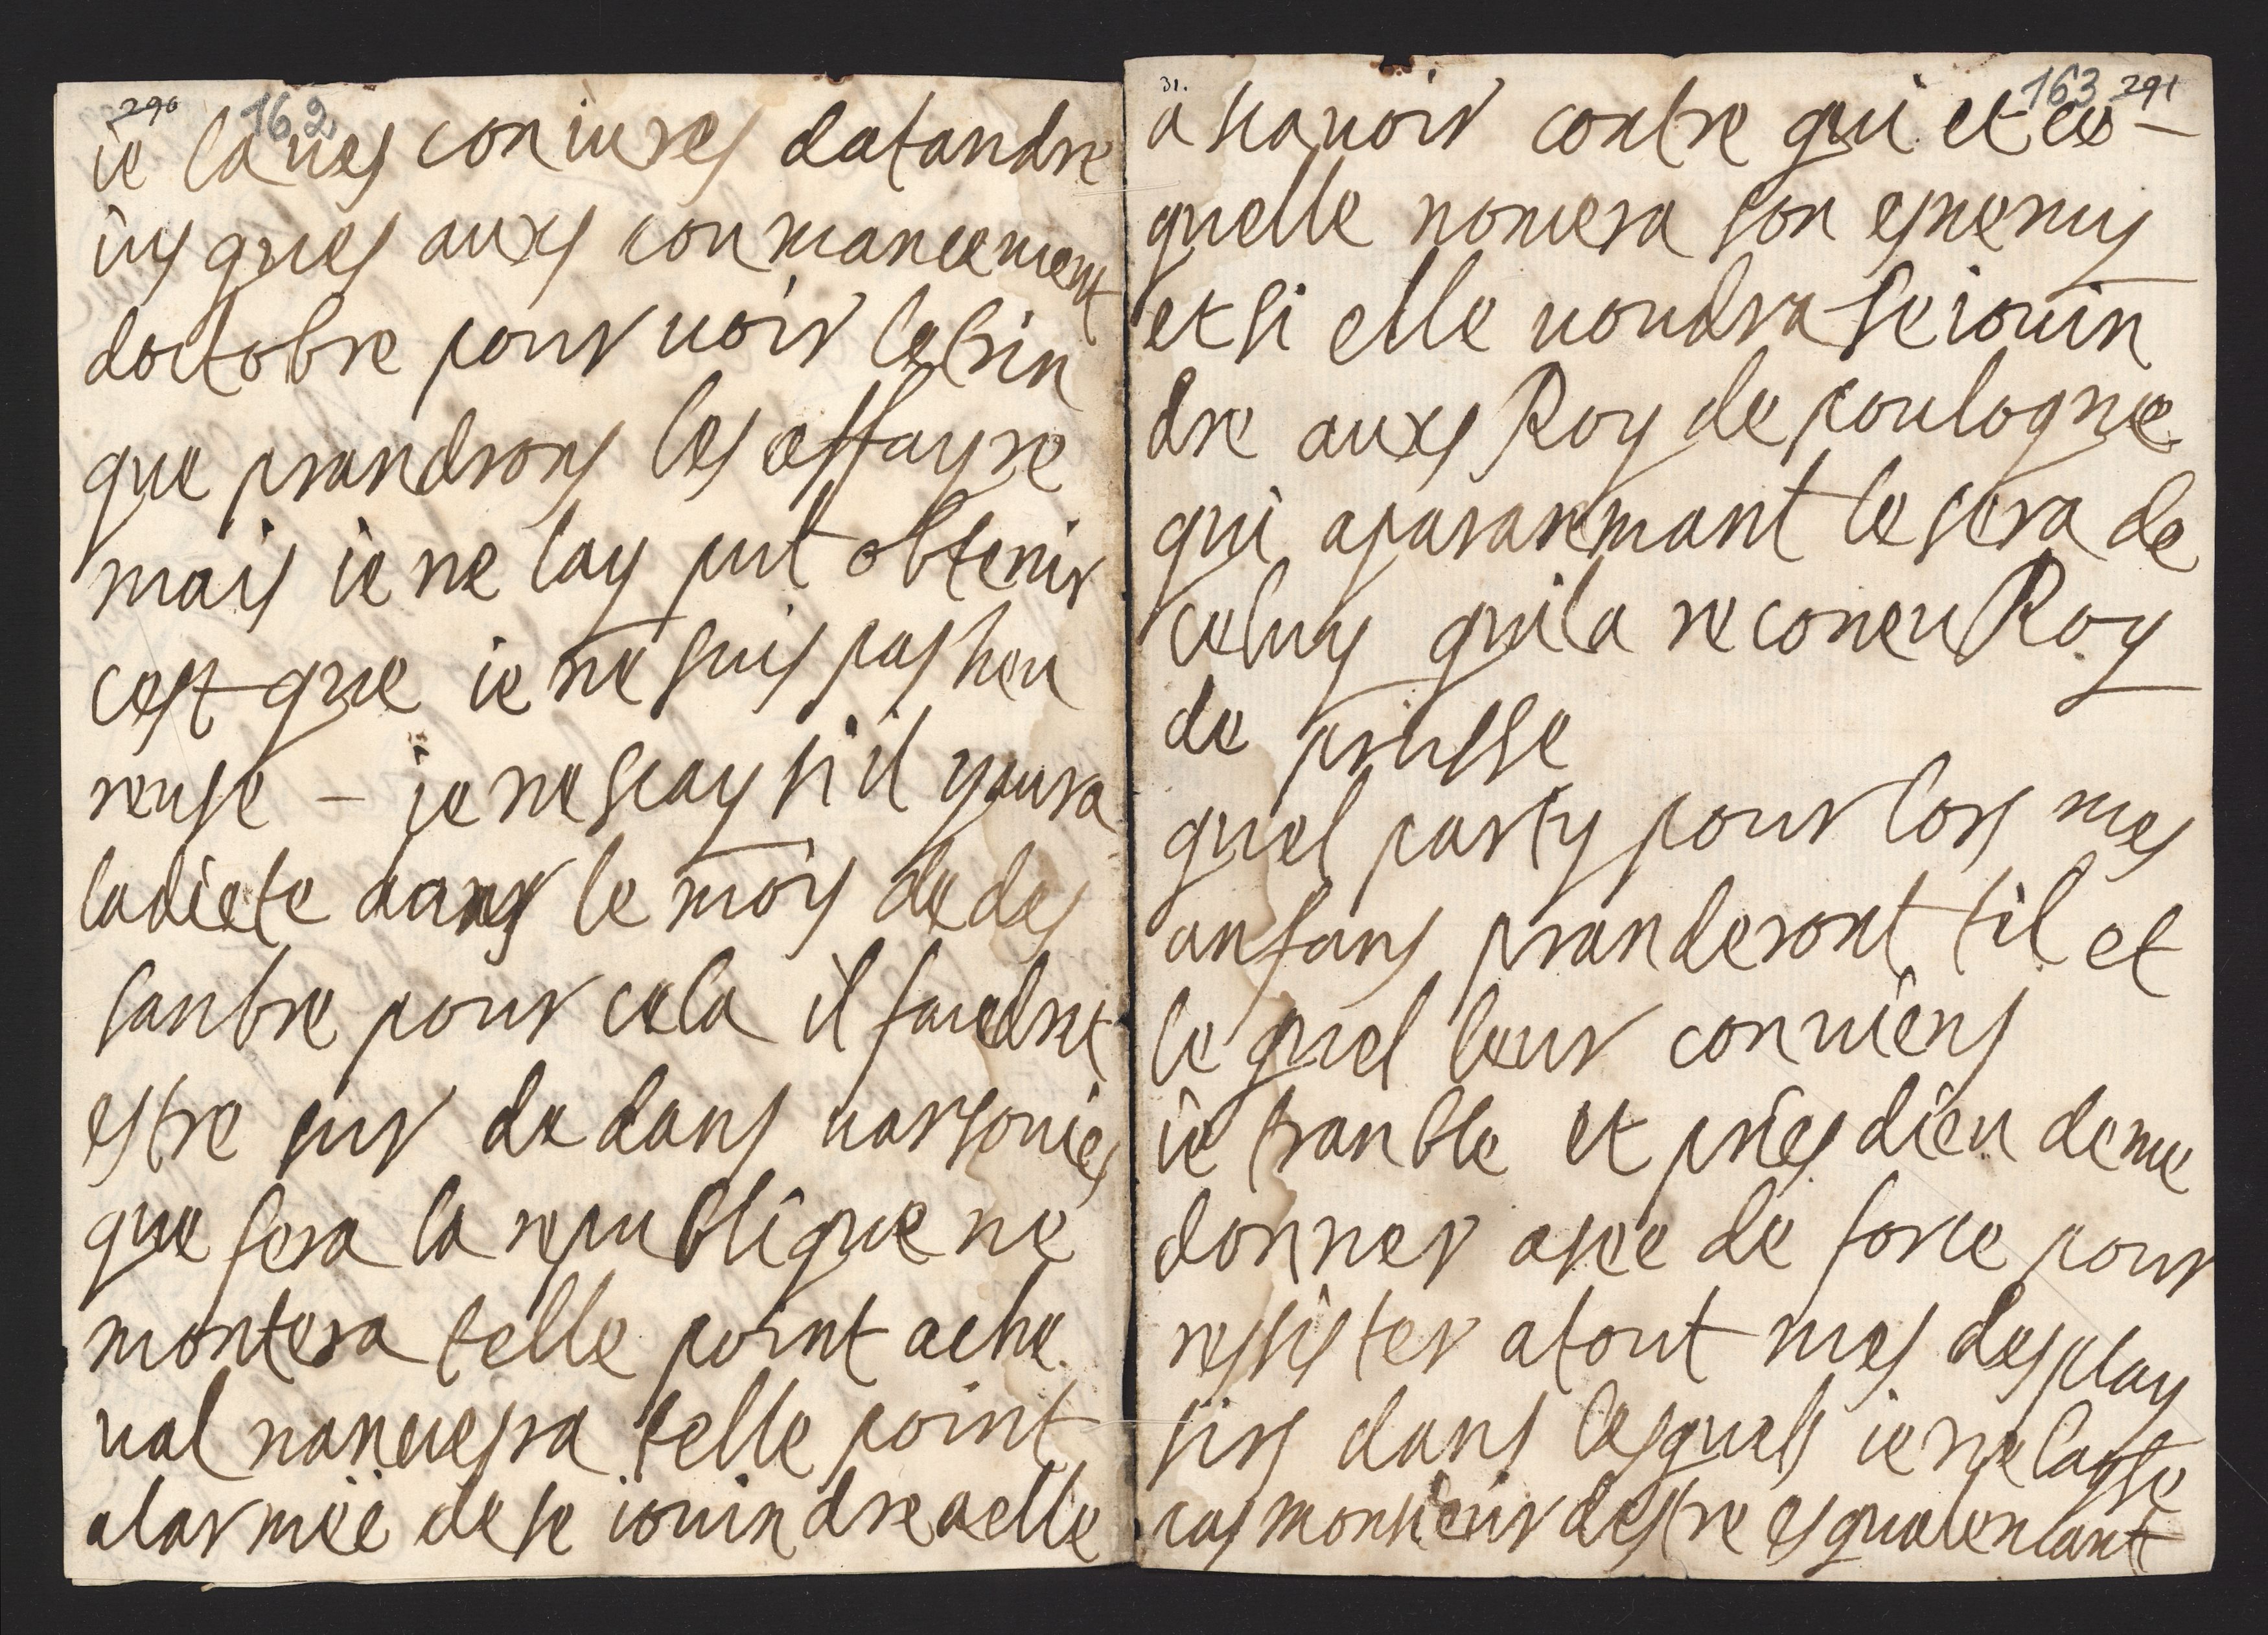 290 162
ie laues coniures datandre
iusques auxs conmancement
doctobre pour uoir letrin
que prandrons les affayre
mais ie ne lay put obtenir
cest que ie ne suis pas heu
reuse – ie ne scay si il yaura
ladiete dans le mois dedes
sanbre pour cela il faudrat
estre sur de dans uarsouies
que fera la republique ne
montera telle point ache
ual nanuesra telle point
alarmëe dese iouindreaelle
31. 163 291
a scauoir contre qui et ce –
quelle nomera son esnemis
et si elle uoudra seiouin
dre auxs Roy de poulogne
qui aparanmant lesera de
celuy quila reconeu Roy
de prusse
quel party pour lors mes
anfans pranderont til et
le quel leur conuiens
ie tranble et pries dieu deme
donner asee de force pour
ressister atout mes desplay
sirs dans lesquels ie ne laysse
pas monsieur destre esgualencant